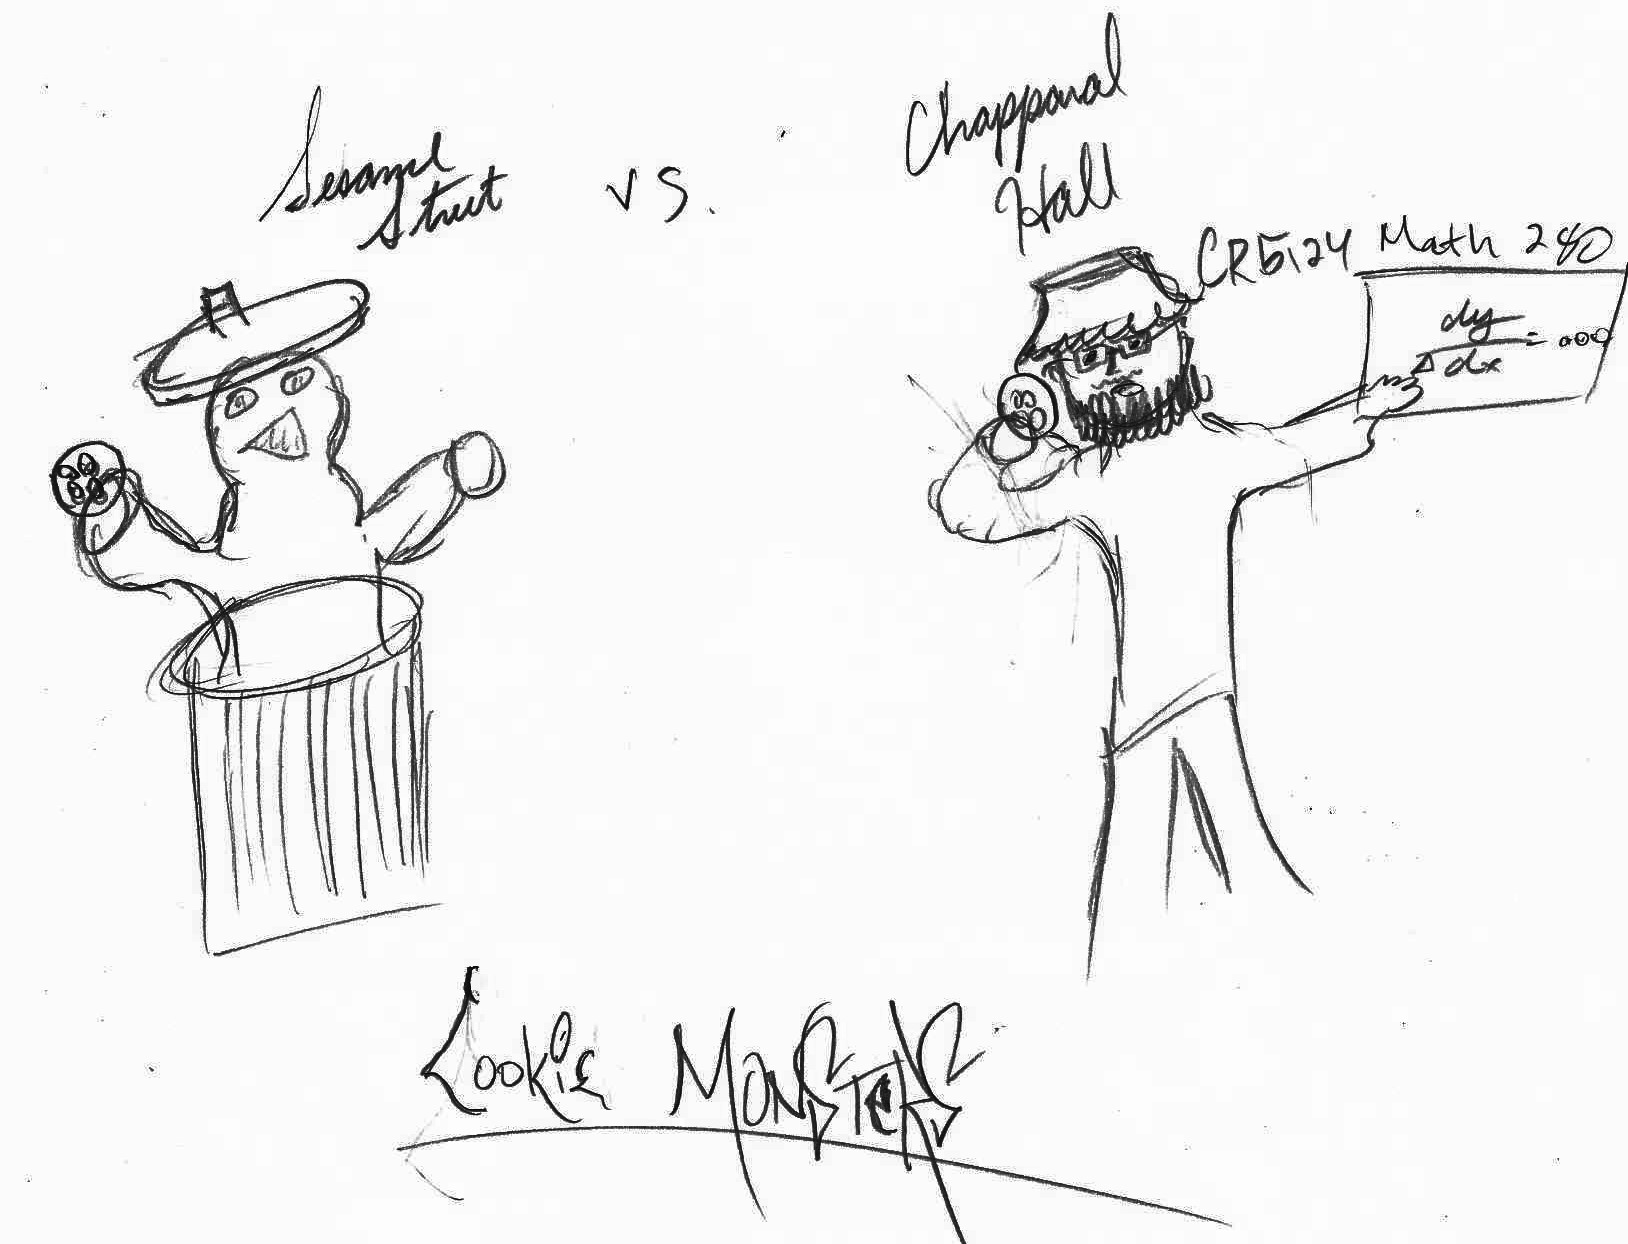 Sesame
Street
vs.
Chapparal
Hall
CR5124 Math 280
dy
Δ dx = ...
Cookie MONSTERS